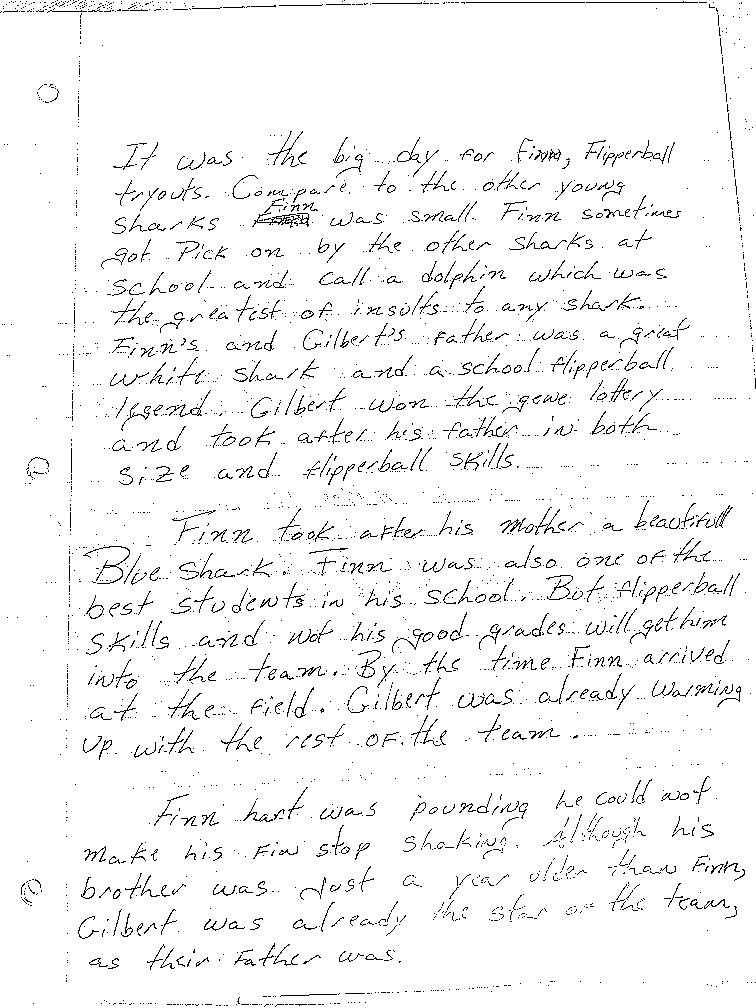 It was the big day for finn, Flipperball
tryouts. Compare to the other young
sharks Finn was small. Finn sometimes
got Pick on by the other sharks at
school and call a dolphin which was
the greatest of insults to any shark.
Finn's and Gilbert's father was a great
white shark and a school flipperball
legend. Gilbert won the gene lottery
and took after his father in both
size and flipperball skills.
Finn took after his mother a beautifull
Blue shark. Finn was also one of the
best students in his school. But flipperball
skills and not his good grades will get him
into the team. By the time Finn arrived
at the field. Gilbert was already warming
up with the rest of the team.
Finn hart was pounding he could not
make his fin stop shaking. Although his
brother was Just a year older than Finn,
Gilbert was already the star of the team,
as their Father was.